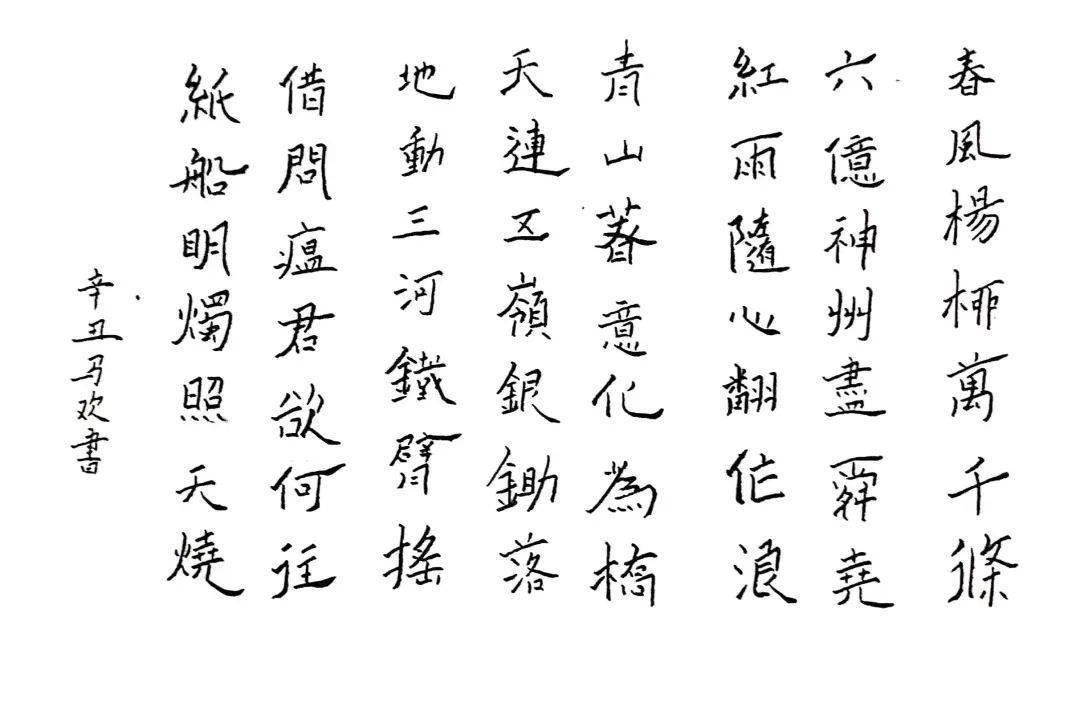 春風楊栁萬千條
六億神州盡舜堯
紅雨隨心翻作浪
青山着意化為橋
天連五嶺銀鋤落
地動三河鐵臂搖
借問瘟君欲何往
紙船明燭照天燒
辛丑马欢書